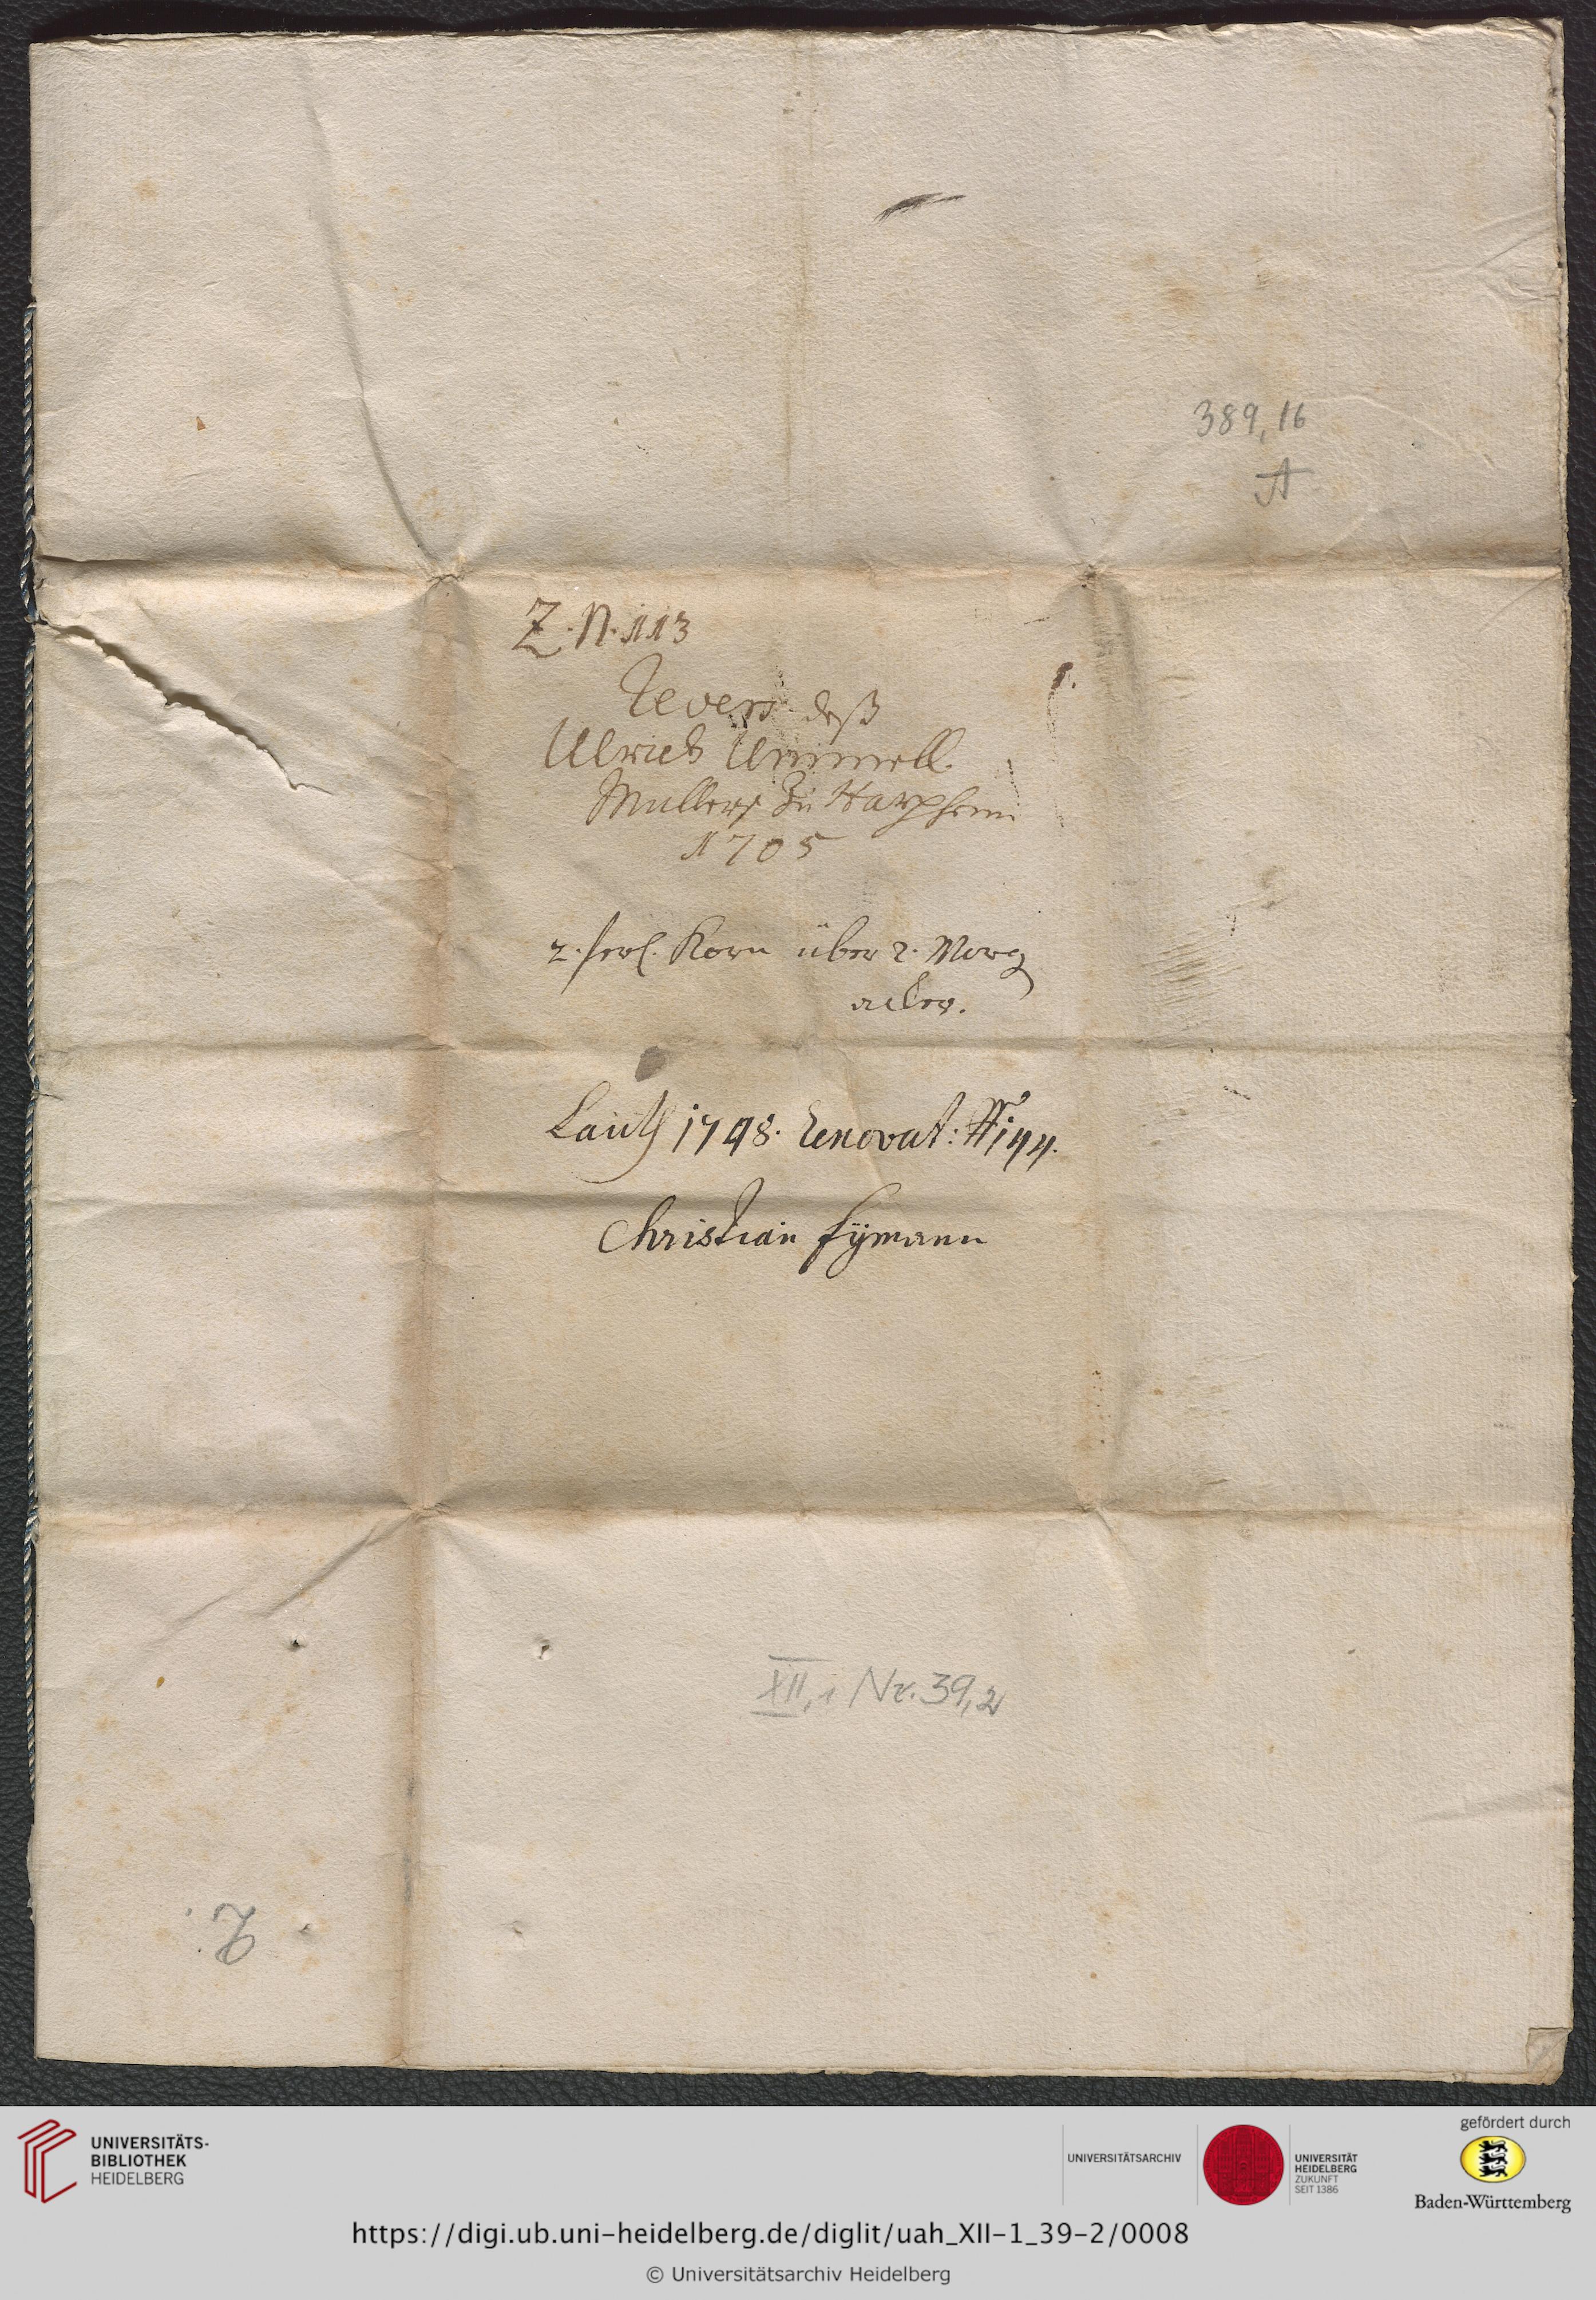 389,16
A
Z. N. 113
Revers deß
Ulrich Ummell.
Müllers Zu Harxheim
1705
2. Korn über 2. Morg
acker.
Lauth 1748. Renovat:
Christian Eÿmann
XII,1 Nr. 39,2
Z.
UNIVERSITÄTS-
BIBLIOTHEK
HEIDELBERG
UNIVERSITÄTSARCHIV
UNIVERSITÄT
HEIDELBERG
ZUKUNFT
SEIT 1386
gefördert durch
Baden-Württemberg
https://digi.ub.uni-heidelberg.de/diglit/uah_XII-1_39-2/0008
© Universitätsarchiv Heidelberg